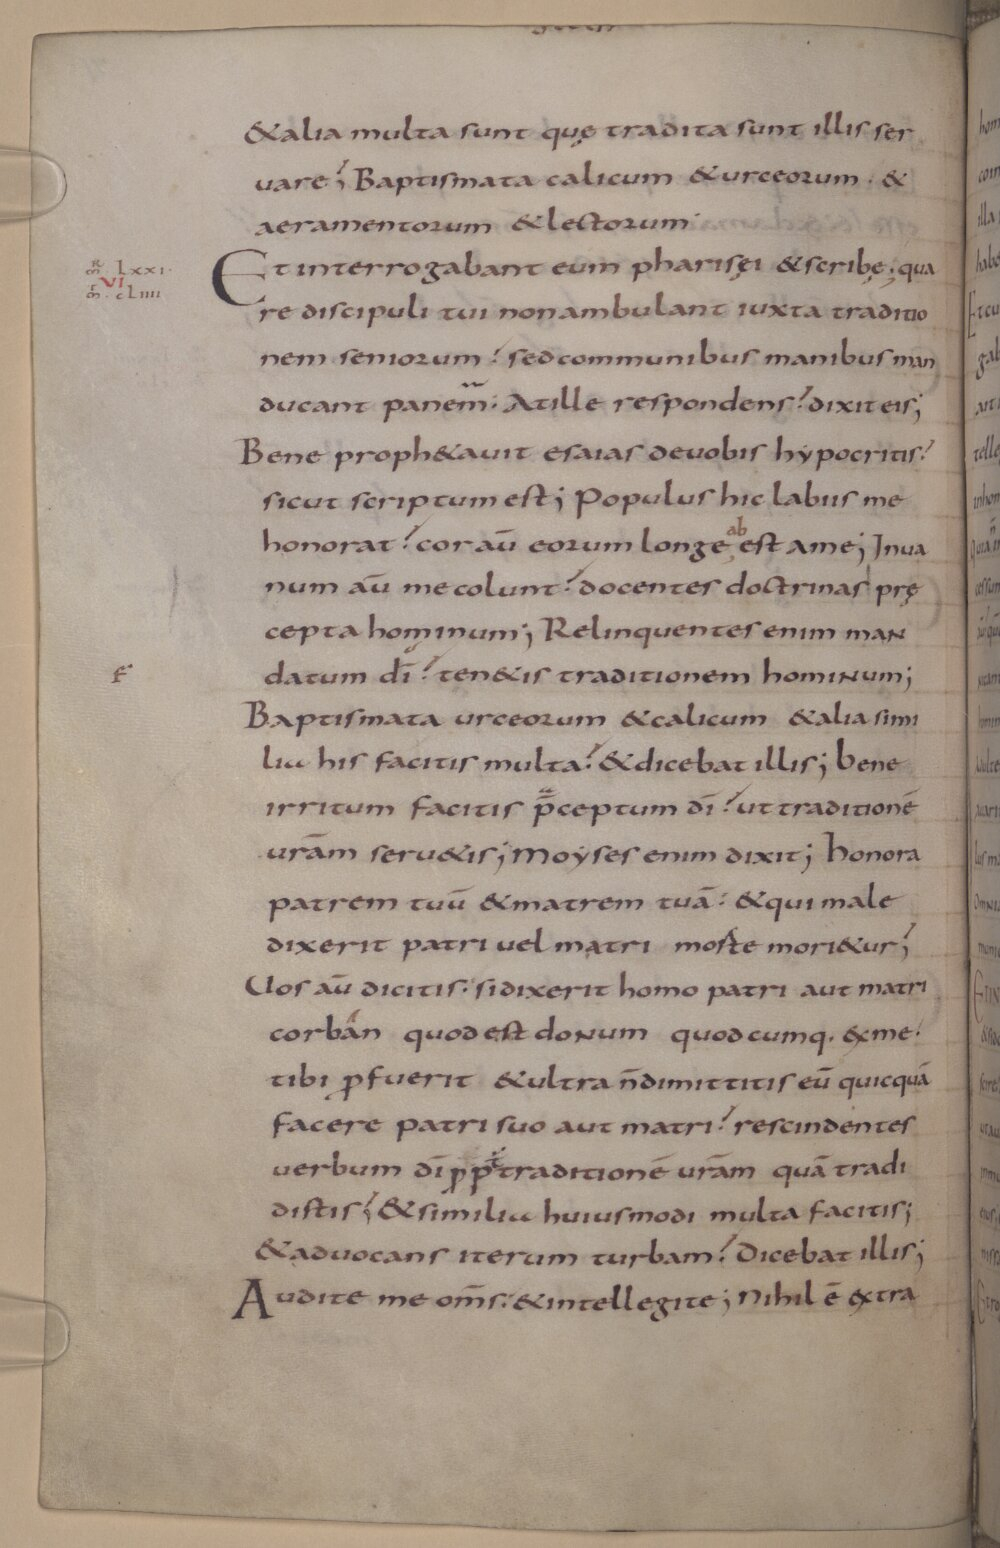 &alia multa sunt quę tradita sunt illis ser
vare; Baptismata calicum &urceorum · &
aeramentorum &lectorum·
mr̄ Lxxi·
VI
mt̄· cLiiii
Et interrogabant eum pharisęi &scribę; qua
re discipuli tui non ambulant iuxta traditio
nem seniorum? sed communibus manibus man
ducant panem̄· At ille respondens? dixit eis;
Bene proph&avit esaias de vobis hypocritis?
sicut scriptum est; Populus hic labiis me
honorat? cor aū eorum longe ab est a me; In va
num aū me colunt? docentes doctrinas prę
cepta hominum; Relinquentes enim man
datum dī? ten&is traditionem hominum;
F
Baptismata urceorum &calicum &alia simi
lia his facitis multa? &dicebat illis; bene
irritum facitis p̄ceptum dī? ut traditionē
vrām serv&is; Moyses enim dixit; honora
patrem tuū &matrem tuā· &qui male
dixerit patri vel matri morte mori&ur;
Vos aū dicitis· si dixerit homo patri aut matri
corbán quod est donum quodcumq· ex me·
tibi ꝓfuerit &ultra n̄ dimittitis eū quicquā
facere patri suo aut matri? rescindentes
verbum dī ꝓpt̄ traditionē vrām quā tradi
distis; &similia huiusmodi multa facitis;
&advocans iterum turbam? Dicebat illis;
Audite me om̄s· &intellegite; Nihil ē extra